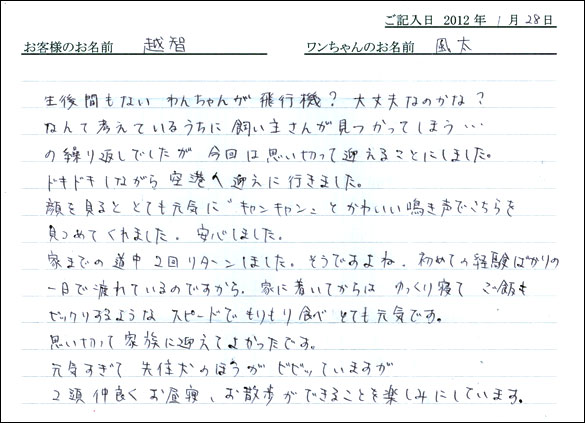 ご記入日 2012 年 1 月 28 日
お客様のお名前 越智 ワンちゃんのお名前 風太
生後間もない わんちゃんが 飛行機? 大丈夫なのかな?
なんて考えているうちに 飼い主さんが見つかってしまう…
の繰り返しでしたが 今回は思い切って迎えることにしました。
ドキドキしながら 空港へ迎えに行きました。
顔を見ると とても元気に “キャンキャン” と かわいい鳴き声でこちらを
見つめてくれました。安心しました。
家までの道中 2回リターンしました。そうですよね、初めての経験ばかりの
一日で疲れているのですから。家に着いてからは ゆっくり寝て ご飯も
ビックリするような スピードで もりもり食べ とても元気です。
思い切って 家族に迎えてよかったです。
元気すぎて 先住犬のほうが ビビッていますが
2頭仲良く お昼寝、お散歩ができることを楽しみにしています。